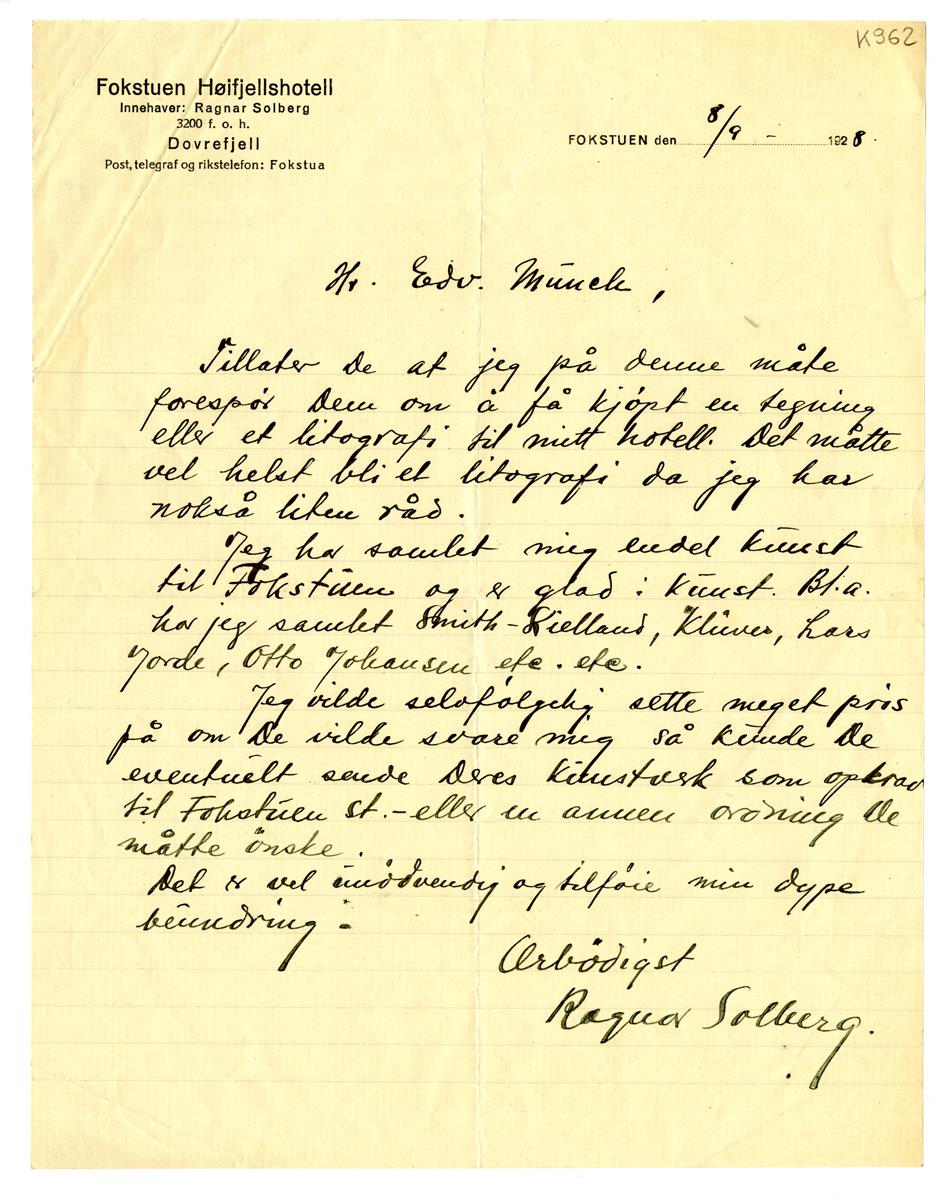 K962
Fokstuen Høifjellshotell
Innehaver: Ragnar Solberg
3200 f. o. h.
Dovrefjell
Post, telegraf og rikstelefon: Fokstua
FOKSTUEN den 8/9 - 1928.
Hr. Edv. Munch,
Tillater De at jeg på denne måte
forespør Dem om å få kjöpt en tegning
eller et litografi til mitt hotell. Det måtte
vel helst bli et litografi da jeg har
nokså liten råd.
Jeg har samlet mig endel kunst
til Fokstuen og er glad i kunst. Bl.a.
har jeg samlet Smith-Kielland, Klüver, Lars
Jorde, Otto Johansen etc. etc.
Jeg vilde selvfölgelig sette meget pris
på om De vilde svare mig så kunde De
eventuelt sende Deres kunstverk som opkrav
til Fokstuen st. - eller en annen ordning De
måtte önske.
Det er vel unödvendig og tilföie min dype
beundring:
Ærbödigst
Ragnar Solberg.